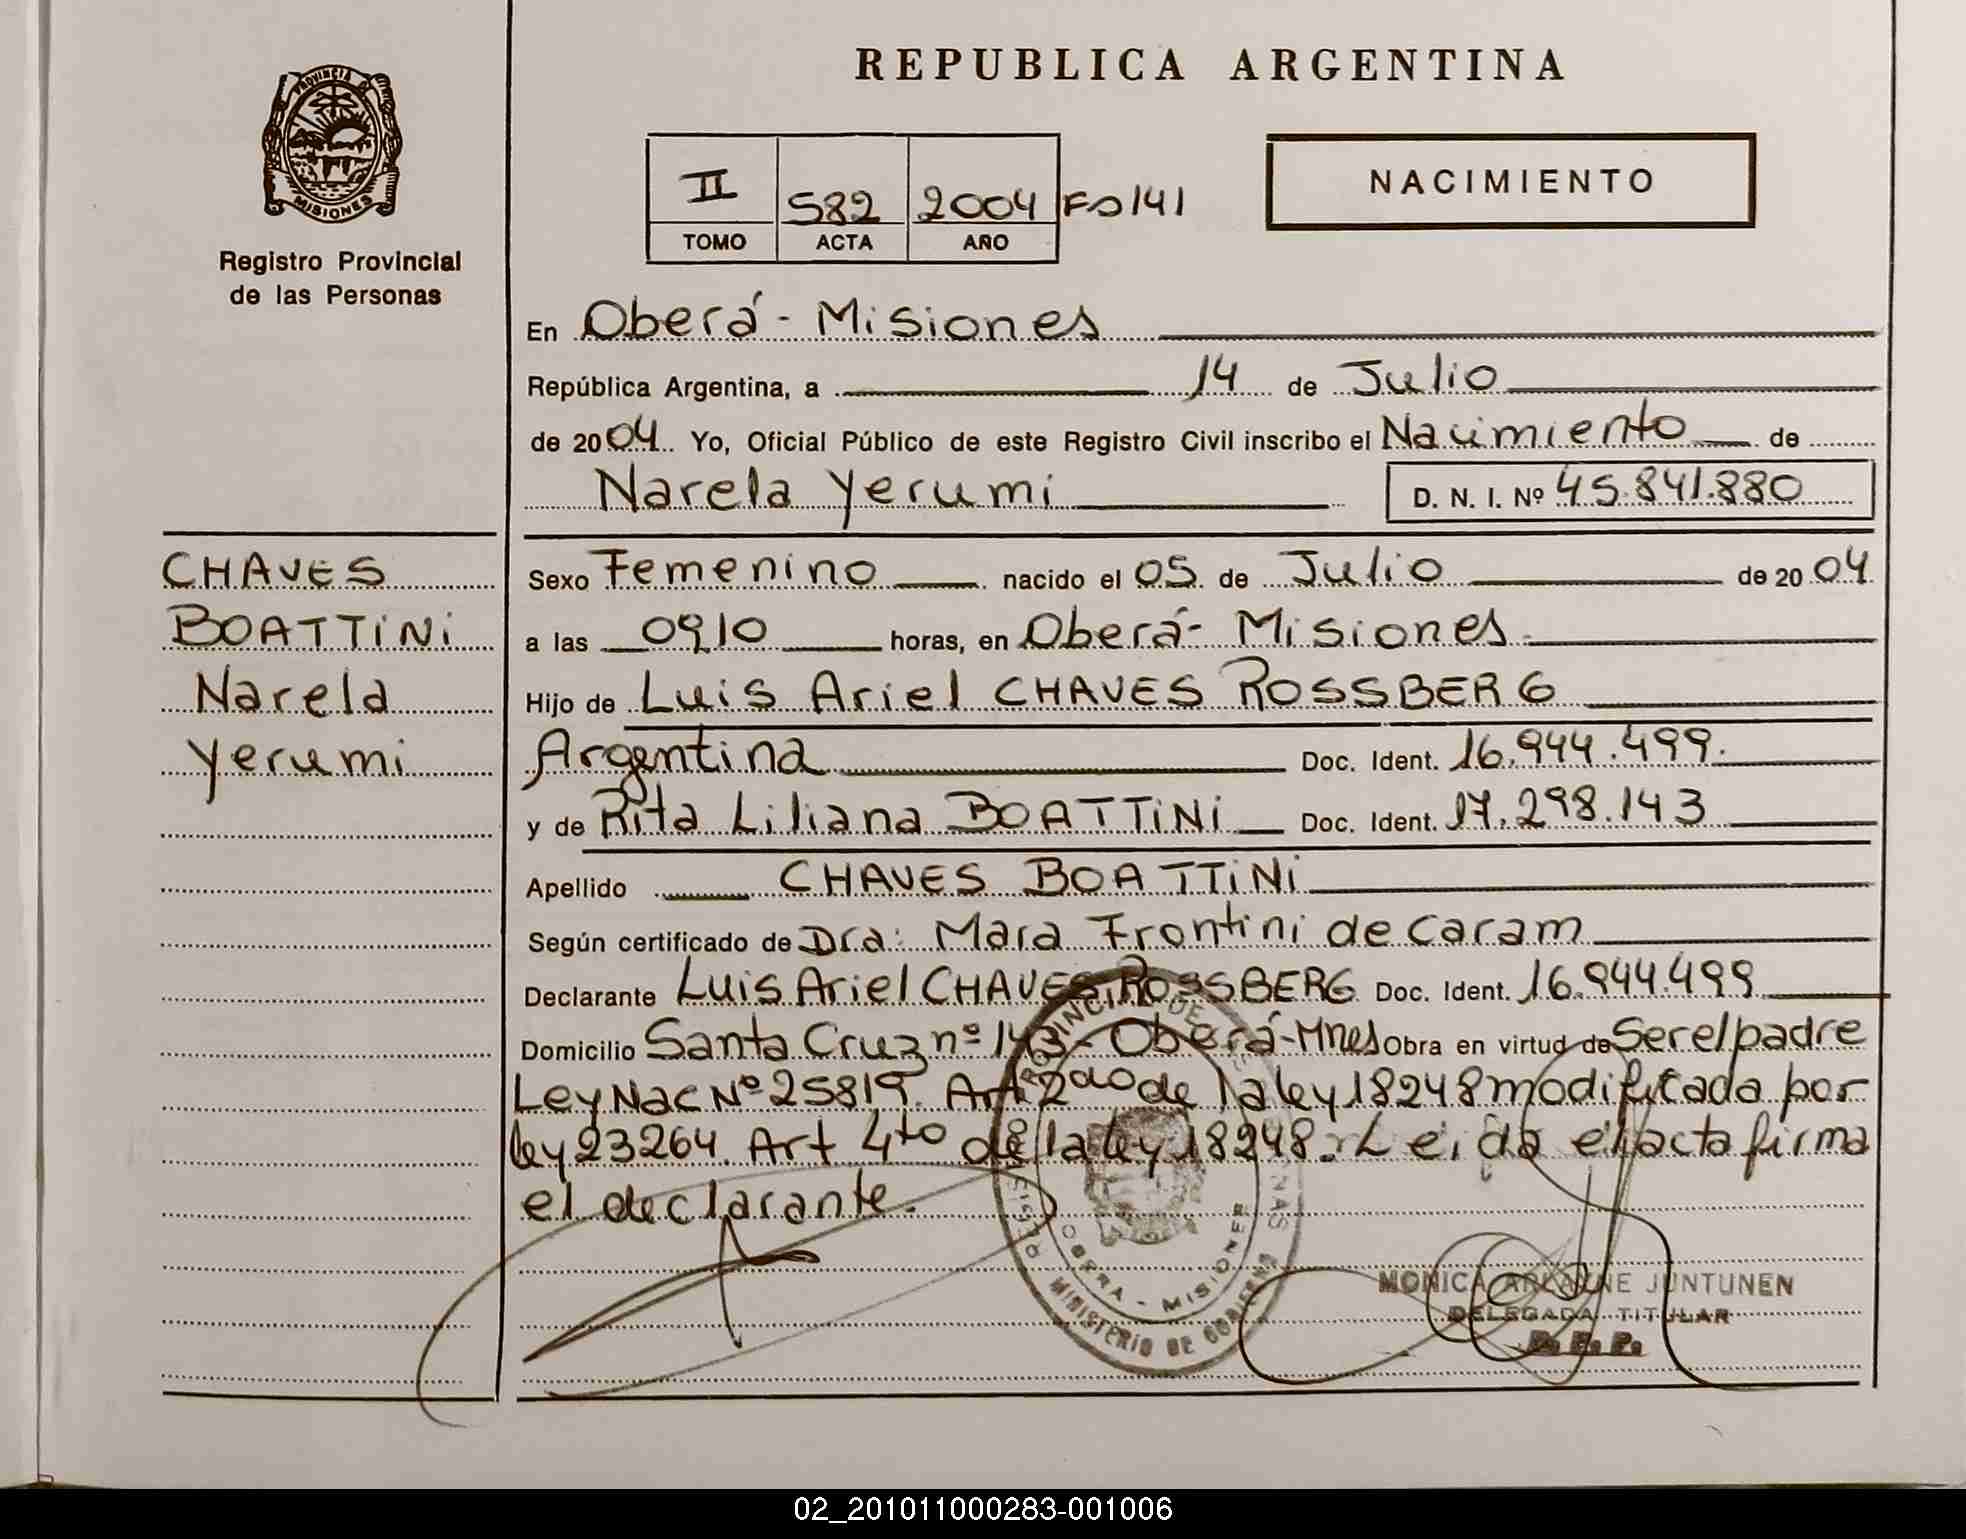 REPUBLICA ARGENTINA
PROVINCIA DE
MISIONES
Registro Provincial
de las Personas
II 582 2004 Fo 141
TOMO ACTA AÑO
NACIMIENTO
En Oberá - Misiones
República Argentina, a 14 de Julio
de 2004. Yo, Oficial Público de este Registro Civil inscribo el Nacimiento de
Narela Yerumi D. N. I. Nº 45.841.880
CHAVES
BOATTINI
Narela
Yerumi
Sexo Femenino nacido el 05 de Julio de 2004
a las 0910 horas, en Oberá - Misiones
Hijo de Luis Ariel CHAVES ROSSBERG
Argentina Doc. Ident. 16.944.499.
y de Rita Liliana BOATTINI Doc. Ident. 17.298.143
Apellido CHAVES BOATTINI
Según certificado de Dra: Mara Frontini de Caram
Declarante Luis Ariel CHAVES ROSSBERG Doc. Ident. 16.944.499
Domicilio Santa Cruz nº 143 - Oberá - Mnes Obra en virtud de Ser el padre
Ley Nac Nº 25819. Art 2do de la ley 18248 modificada por
ley 23264. Art 4to de la ley 18248. Leida el acta firma
el declarante.
PROVINCIAL DE
OBERA - MISIONES
MINISTERIO DE GOBIERNO
MONICA JUNTUNEN
DELEGADA TITULAR
02_201011000283-001006